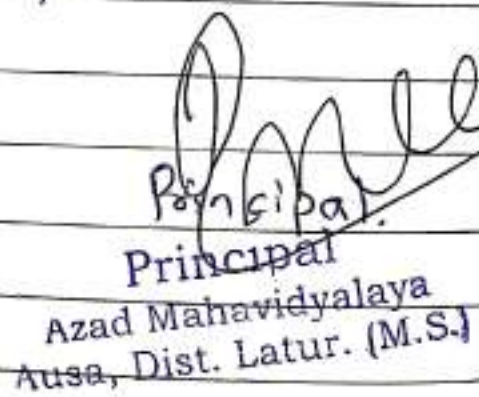 Principal.
Principal
Azad Mahavidyalaya
Ausa, Dist. Latur. (M.S.)